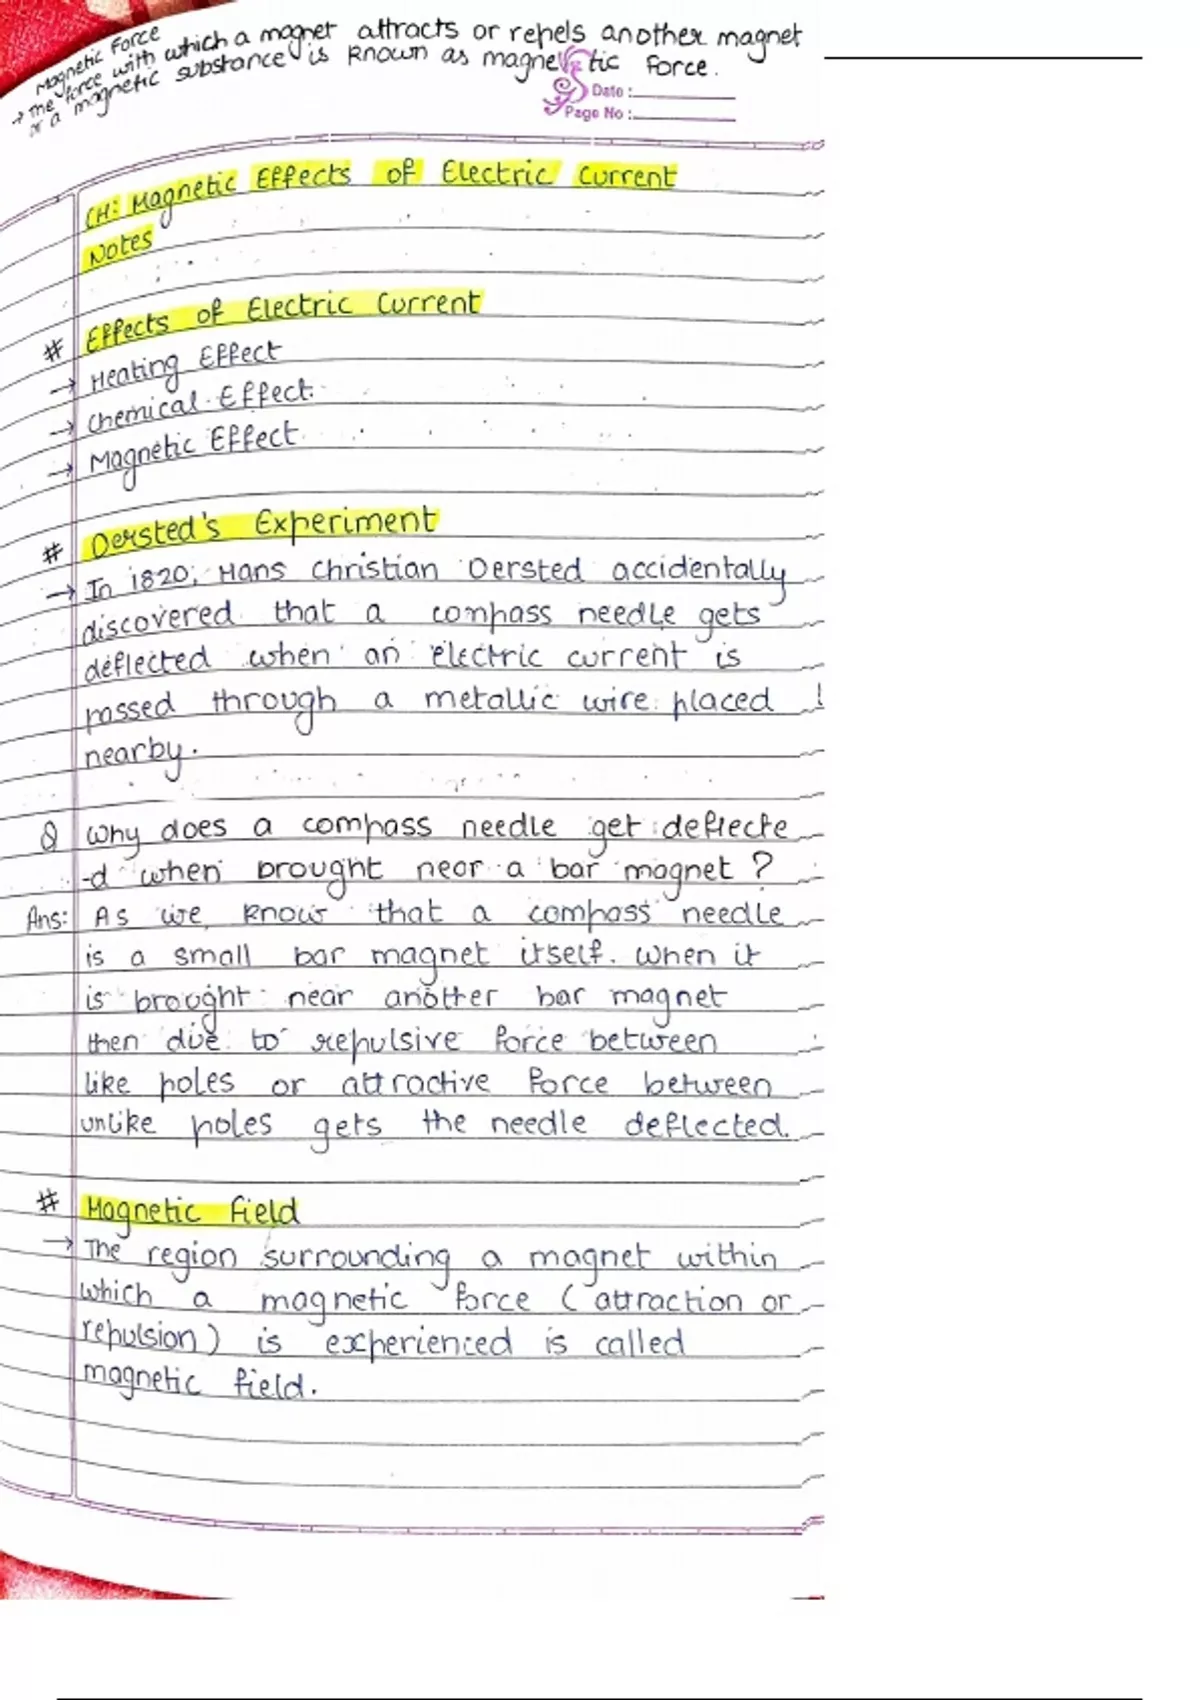 Magnetic Force
→ The force with which a magnet attracts or repels another magnet
or a magnetic substance is known as magnetic force.
Date :
Page No :
CH: Magnetic Effects of Electric Current
Notes
# Effects of Electric Current
→ Heating Effect
→ Chemical Effect.
→ Magnetic Effect
# Oersted's Experiment
→ In 1820, Hans Christian Oersted accidentally
discovered that a compass needle gets
deflected when an electric current is
passed through a metallic wire placed
nearby.
Q Why does a compass needle get deflecte
-d when brought near a bar magnet ?
Ans: As we know that a compass needle
is a small bar magnet itself. When it
is brought near another bar magnet
then due to repulsive force between
like poles or attractive force between
unlike poles gets the needle deflected.
# Magnetic Field
→ The region surrounding a magnet within
which a magnetic force (attraction or
repulsion) is experienced is called
magnetic field.